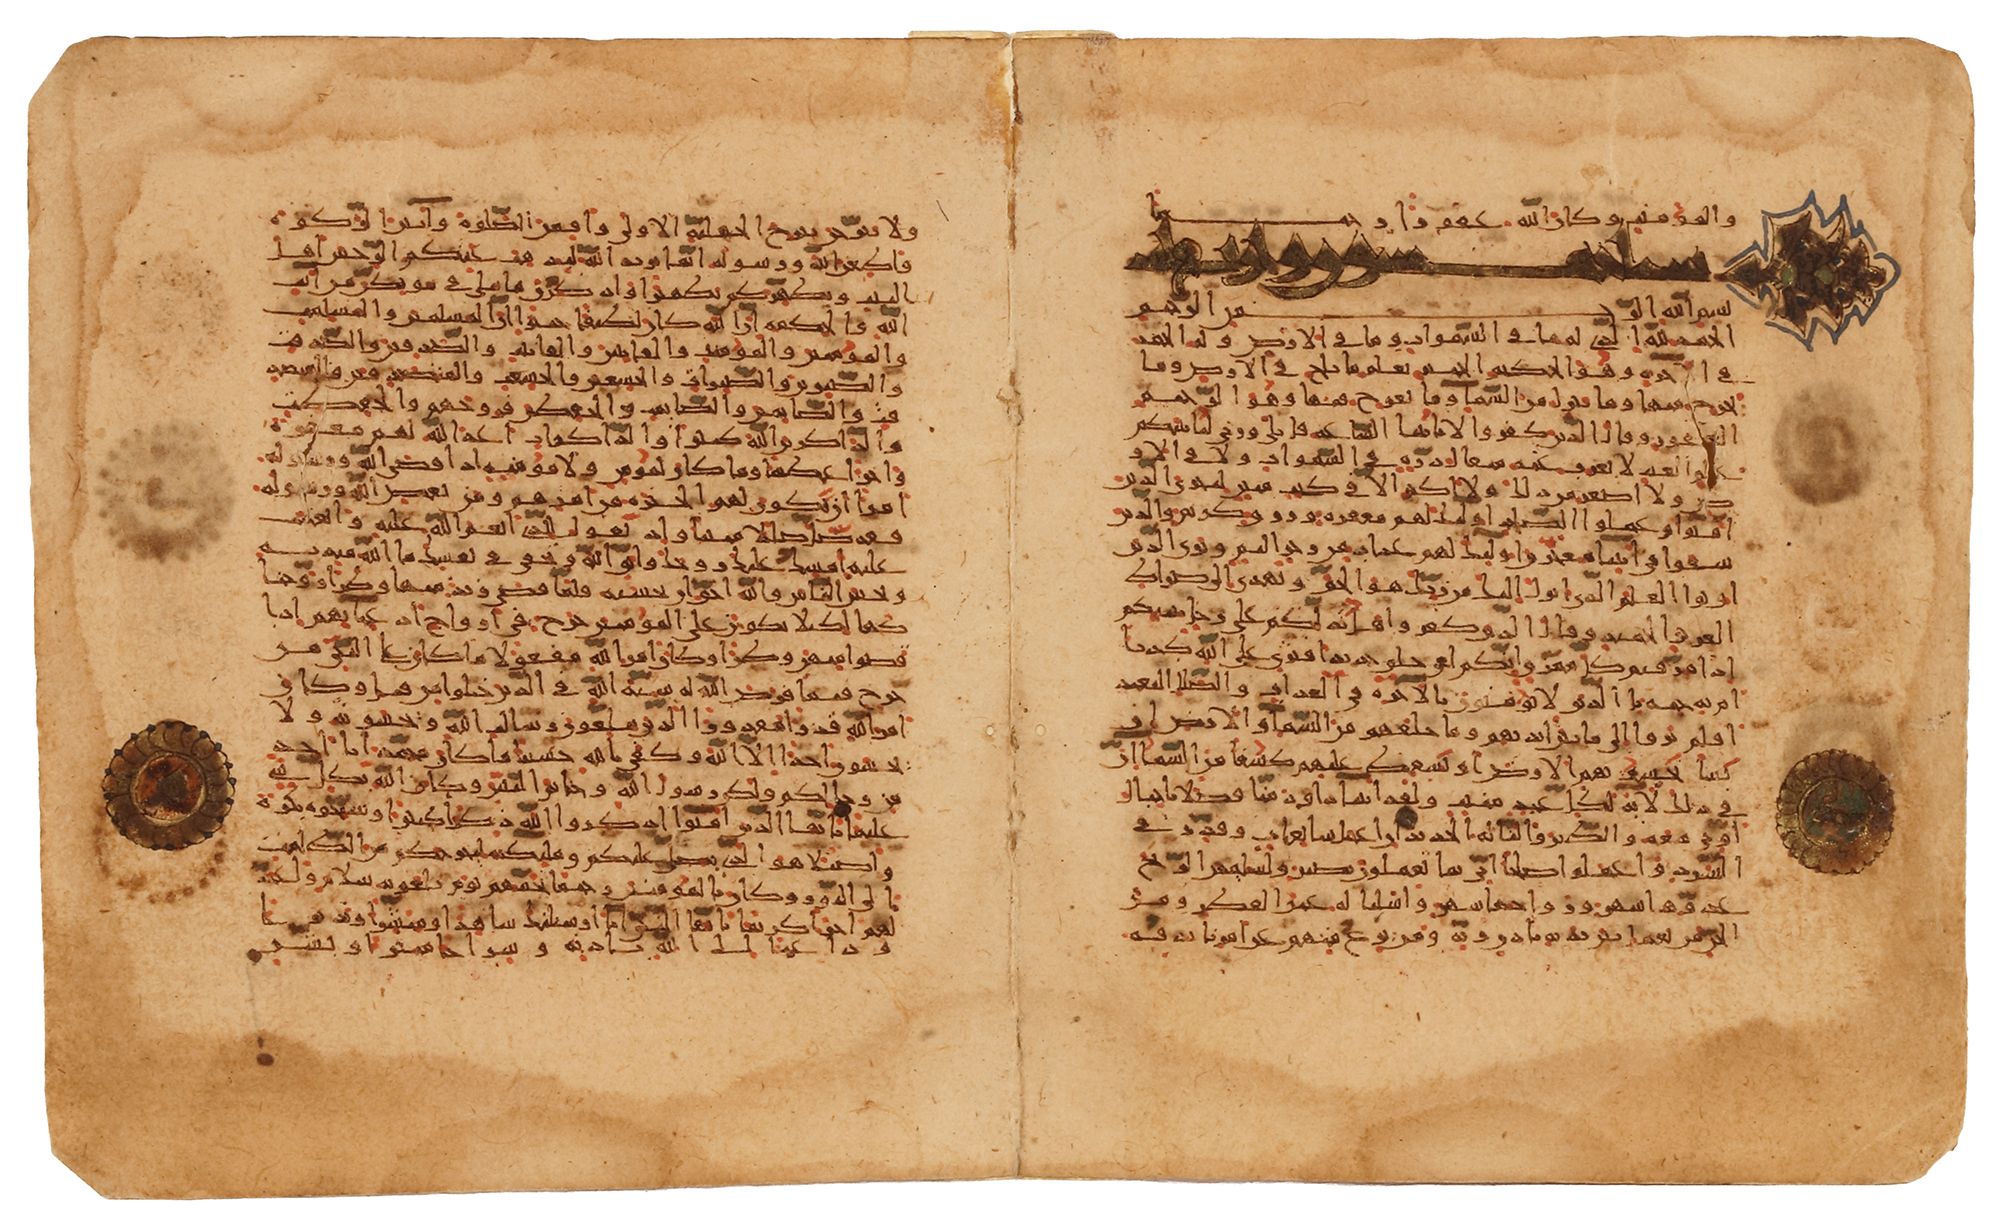 والمؤمنين وكان الله غفورا رحيما
سبا خمسون واربع
بسم الله الرحمن الرحيم
الحمد لله الذي له ما في السموات وما في الارض وله الحمد
في الاخرة وهو الحكيم الخبير يعلم ما يلج في الارض وما
يخرج منها وما ينزل من السماء وما يعرج فيها وهو الرحيم
الغفور وقال الذين كفروا لا تاتينا الساعة قل بلى وربي لتاتينكم
علم الغيب لا يعزب عنه مثقال ذرة في السموات ولا في الار
ض ولا اصغر من ذلك ولا اكبر الا في كتب مبين ليجزي الذين
امنوا وعملوا الصلحت اولئك لهم مغفرة ورزق كريم والذين
سعوا في ايتنا معجزين اولئك لهم عذاب من رجز اليم ويرى الذين
اوتوا العلم الذي انزل اليك من ربك هو الحق ويهدي الى صراط
العزيز الحميد وقال الذين كفروا هل ندلكم على رجل ينبئكم
اذا مزقتم كل ممزق انكم لفي خلق جديد افترى على الله كذبا
ام به جنة بل الذين لا يؤمنون بالاخرة في العذاب والضلل البعيد
افلم يروا الى ما بين ايديهم وما خلفهم من السماء والارض ان
نشا نخسف بهم الارض او نسقط عليهم كسفا من السماء ان
في ذلك لاية لكل عبد منيب ولقد اتينا داود منا فضلا يجبال
اوبي معه والطير والنا له الحديد ان اعمل سابغات وقدر في
السرد واعملوا صلحا اني بما تعملون بصير ولسليمن الريح
غدوها شهر ورواحها شهر واسلنا له عين القطر ومن
الجن من يعمل بين يديه باذن ربه ومن يزغ منهم عن امرنا نذقه
ولا تبرجن تبرج الجهلية الاولى واقمن الصلوة واتين الزكوة
واطعن الله ورسوله انما يريد الله ليذهب عنكم الرجس اهل
البيت ويطهركم تطهيرا واذكرن ما يتلى في بيوتكن من ايت
الله والحكمة ان الله كان لطيفا خبيرا ان المسلمين والمسلمت
والمؤمنين والمؤمنت والقنتين والقنتت والصدقين والصدقت
والصبرين والصبرت والخشعين والخشعت والمتصدقين والمتصد
قت والصئمين والصئمت والحفظين فروجهم والحفظت
والذاكرين الله كثيرا والذاكرات اعد الله لهم مغفرة
واجرا عظيما وما كان لمؤمن ولا مؤمنة اذا قضى الله ورسوله
امرا ان تكون لهم الخيرة من امرهم ومن يعص الله ورسوله
فقد ضل ضللا مبينا واذ تقول للذي انعم الله عليه وانعمت
عليه امسك عليك زوجك واتق الله وتخفي في نفسك ما الله مبديه
وتخشى الناس والله احق ان تخشيه فلما قضى زيد منها وطرا زوجنا
كها لكيلا يكون على المؤمنين حرج في ازواج ادعيائهم اذا
قضوا منهن وطرا وكان امر الله مفعولا ما كان على النبي من
حرج فيما فرض الله له سنة الله في الذين خلوا من قبل وكان
امر الله قدرا مقدورا الذين يبلغون رسالت الله ويخشونه ولا
يخشون احدا الا الله وكفى بالله حسيبا ما كان محمد ابا احد
من رجالكم ولكن رسول الله وخاتم النبين وكان الله بكل شيء
عليما يايها الذين امنوا اذكروا الله ذكرا كثيرا وسبحوه بكرة
واصيلا هو الذي يصلي عليكم وملئكته ليخرجكم من الظلمت
الى النور وكان بالمؤمنين رحيما تحيتهم يوم يلقونه سلام واعد
لهم اجرا كريما يايها النبي انا ارسلنك شاهدا ومبشرا ونذيرا
وداعيا الى الله باذنه وسراجا منيرا وبشر